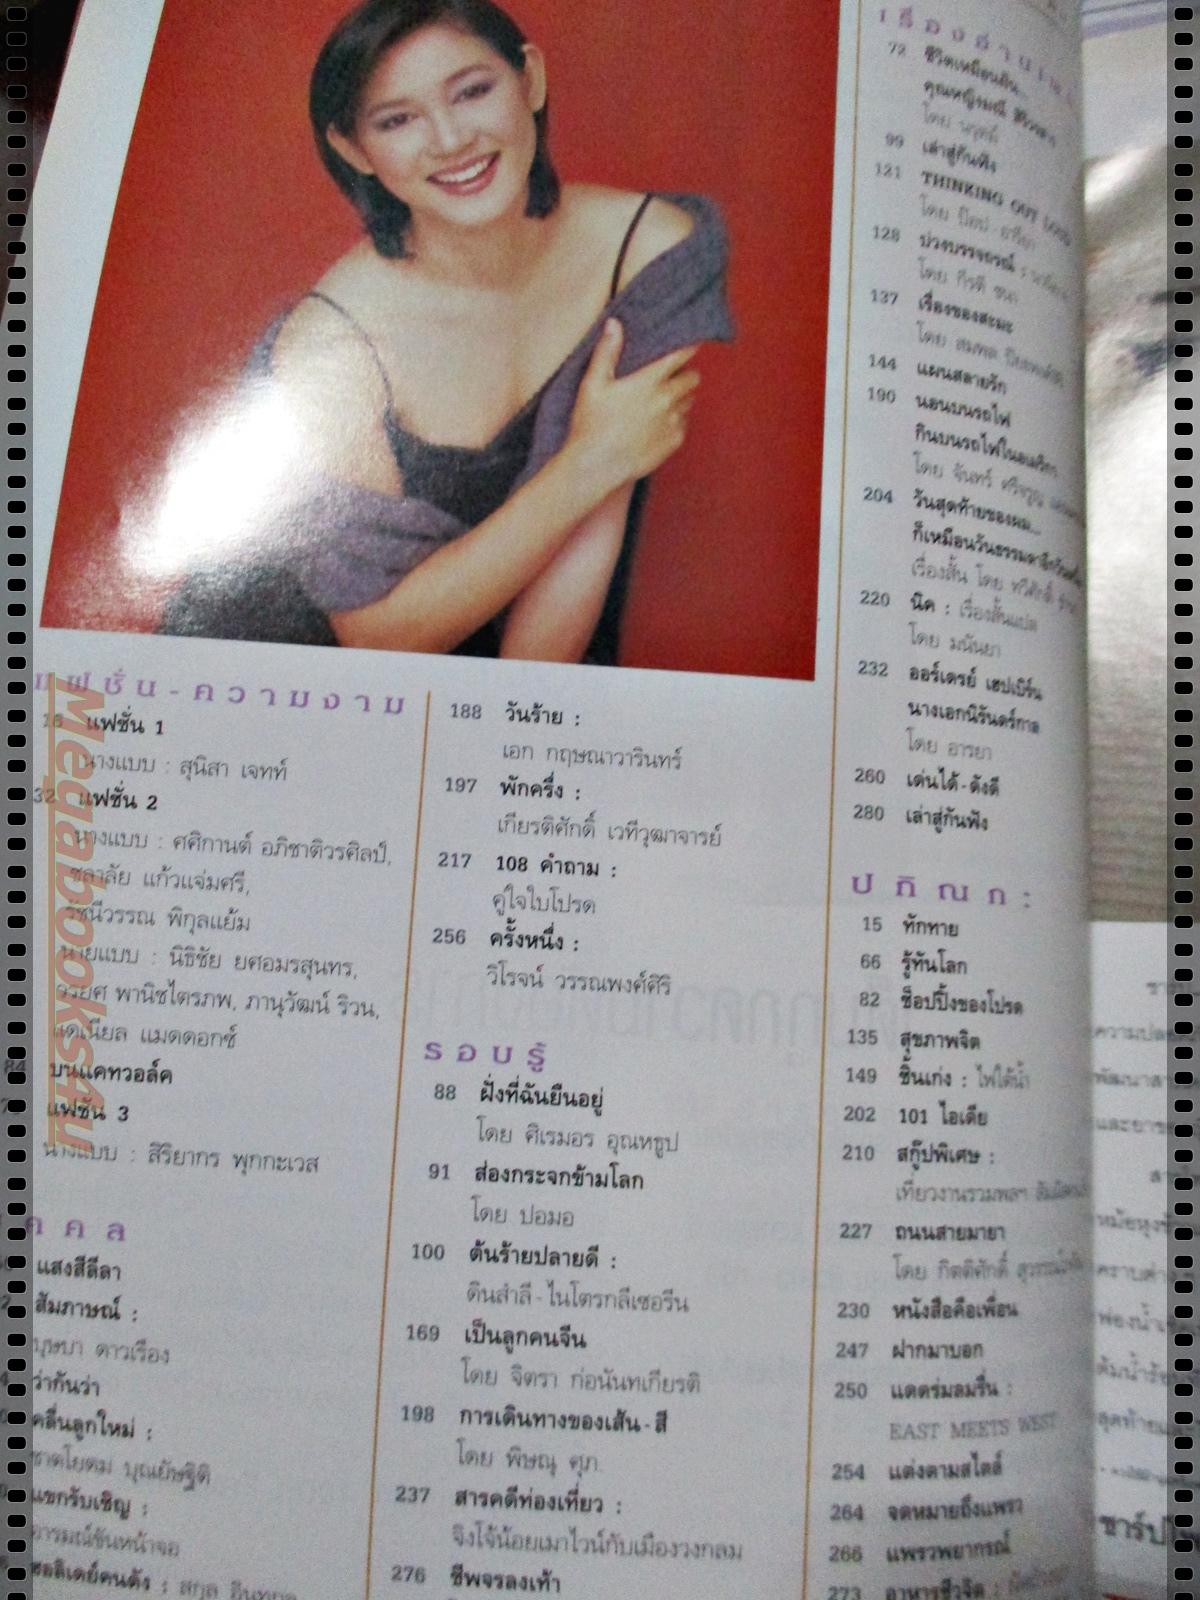 แฟชั่น-ความงาม
16 แฟชั่น 1
นางแบบ : สุนิสา เจทท์
32 แฟชั่น 2
นางแบบ : ศศิกานต์ อภิชาติวรศิลป์,
ชลาลัย แก้วแจ่มศรี,
รัชนีวรรณ พิกุลแย้ม
นายแบบ : นิธิชัย ยศอมรสุนทร,
วรยศ พานิชไตรภพ, ภานุวัฒน์ ริวน,
แดเนียล แมดดอกซ์
84 บนแคทวอล์ค
แฟชั่น 3
นางแบบ : สิริยากร พุกกะเวส
แสงสีลีลา
สัมภาษณ์ :
บุษบา ดาวเรือง
ว่ากันว่า
คลื่นลูกใหม่ :
แขกรับเชิญ :
อารมณ์ขันหน้าจอ
188 วันร้าย :
เอก กฤษณาวารินทร์
197 พักครึ่ง :
เกียรติศักดิ์ เวทีวุฒาจารย์
217 108 คำถาม :
คู่ใจใบโปรด
256 ครั้งหนึ่ง :
วิโรจน์ วรรณพงศ์ศิริ
รอบรู้
88 ฝั่งที่ฉันยืนอยู่
โดย ศิเรมอร อุณหธูป
91 ส่องกระจกข้ามโลก
โดย ปอมอ
100 ต้นร้ายปลายดี :
ดินสำลี-ไนโตรกลีเซอรีน
169 เป็นลูกคนจีน
โดย จิตรา ก่อนันทเกียรติ
198 การเดินทางของเส้น-สี
โดย พิษณุ ศุภ.
237 สารคดีท่องเที่ยว :
จิงโจ้น้อยเมาไวน์กับเมืองวงกลม
276 ชีพจรลงเท้า
72 ชีวิตเหมือนฝัน...
99 เล่าสู่กันฟัง
121 THINKING OUT LOUD
128 บ่วงบรรจถรณ์ :
โดย กิรติ ชนา
137 เรื่องของสะมะ
144 แผนสลายรัก
190 นอนบนรถไฟ
กินบนรถไฟในอเมริกา
204 วันสุดท้ายของผม...
เรื่องสั้น โดย
220 นิค : เรื่องสั้นแปล
โดย มนันยา
232 ออร์เดรย์ เฮปเบิร์น
นางเอกนิรันดร์กาล
โดย อารยา
260 เด่นได้-ดังดี
280 เล่าสู่กันฟัง
ปกิณกะ
15 ทักทาย
66 รู้ทันโลก
82 ช็อปปิ้งของโปรด
135 สุขภาพจิต
149 ชิ้นเก่ง : ไฟใต้น้ำ
202 101 ไอเดีย
210 สกู๊ปพิเศษ :
227 ถนนสายมายา
โดย กิตติศักดิ์
230 หนังสือคือเพื่อน
247 ฝากมาบอก
250 แดดร่มลมรื่น :
EAST MEETS WEST
254 แต่งตามสไตล์
264 จดหมายถึงแพรว
266 แพรวพยากรณ์
273 อาหารชีวจิต :
Megabooks4u